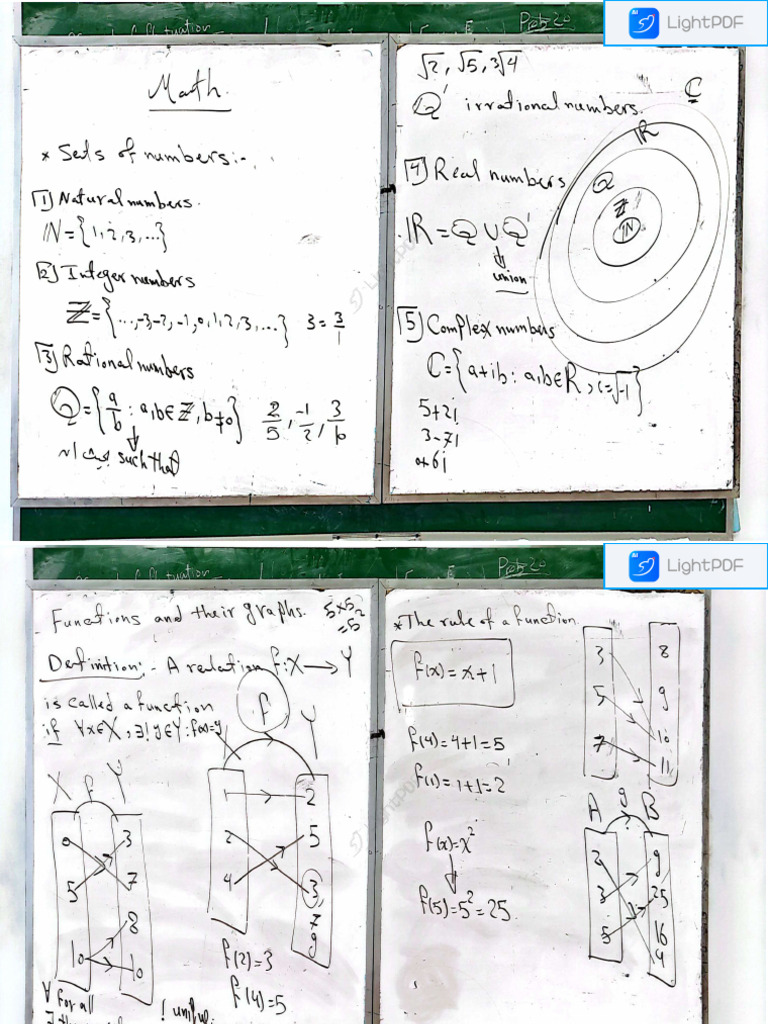 LightPDF
Math
* Sets of numbers:-
1 Natural numbers.
ℕ={1,2,3,...}
2 Integer numbers
ℤ={...,-3,-2,-1,0,1,2,3,...} 3=3/1
3 Rational numbers
Q={a/b : a,b∈ℤ, b≠0} 2/5, -1/2, 3/10
such that
√2, √5, 3√4
Q' irrational numbers.
C
ℝ
Q
ℤ
ℕ
4 Real numbers
ℝ=Q∪Q'
union
5 Complex numbers
C={a+ib: a,b∈R, i=√-1}
5+2i
3-7i
0+6i
LightPDF
Functions and their graphs.
Definition:- A realation f:X→Y
is called a function
if ∀x∈X, ∃!y∈Y: f(x)=y
f
Y
1 2
2 5
4 3
7
9
X f Y
0 3
5 7
8
10 10
f(2)=3
f(4)=5
∀ for all
* The rule of a function
f(x)=x+1
f(4)=4+1=5
f(1)=1+1=2
f(x)=x²
f(5)=5²=25
3 8
5 9
7 10
11
A g B
2 9
3 25
5 16
4